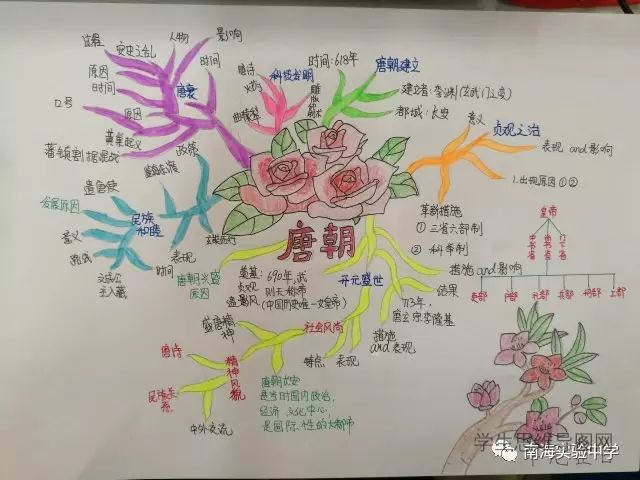 过程
安史之乱
人物
影响
原因
时间
时间
唐衰
口号
原因
黄巢起义
藩镇割据混战
政策
唐诗
火药
科技发明
曲辕犁
雕版印刷术
时间：618年
唐朝建立
建立者：李渊(玄武门之变)
都城：长安
意义
贞观之治
表现 and 影响
1.出现原因 ①②
鉴真东渡
遣唐使
发展原因
民族和睦
意义
路线
文成公主入藏
时间
表现
玄奘西行
唐朝
革新措施
① 三省六部制
② 科举制
皇帝
中书省
尚书省
门下省
吏部
户部
礼部
兵部
刑部
工部
唐朝兴盛原因
奠基：690年，武则天称帝
(中国历史唯一女皇帝)
贞观遗风
开元盛世
措施 and 影响
结果
713年，
唐玄宗李隆基
措施 and 表现
盛唐精神
社会风尚
特点
表现
唐诗
精神风貌
中外交流
唐朝长安
是当时国内政治，
经济 文化中心，
是国际性的大都市
学生思维导图网
南海实验中学